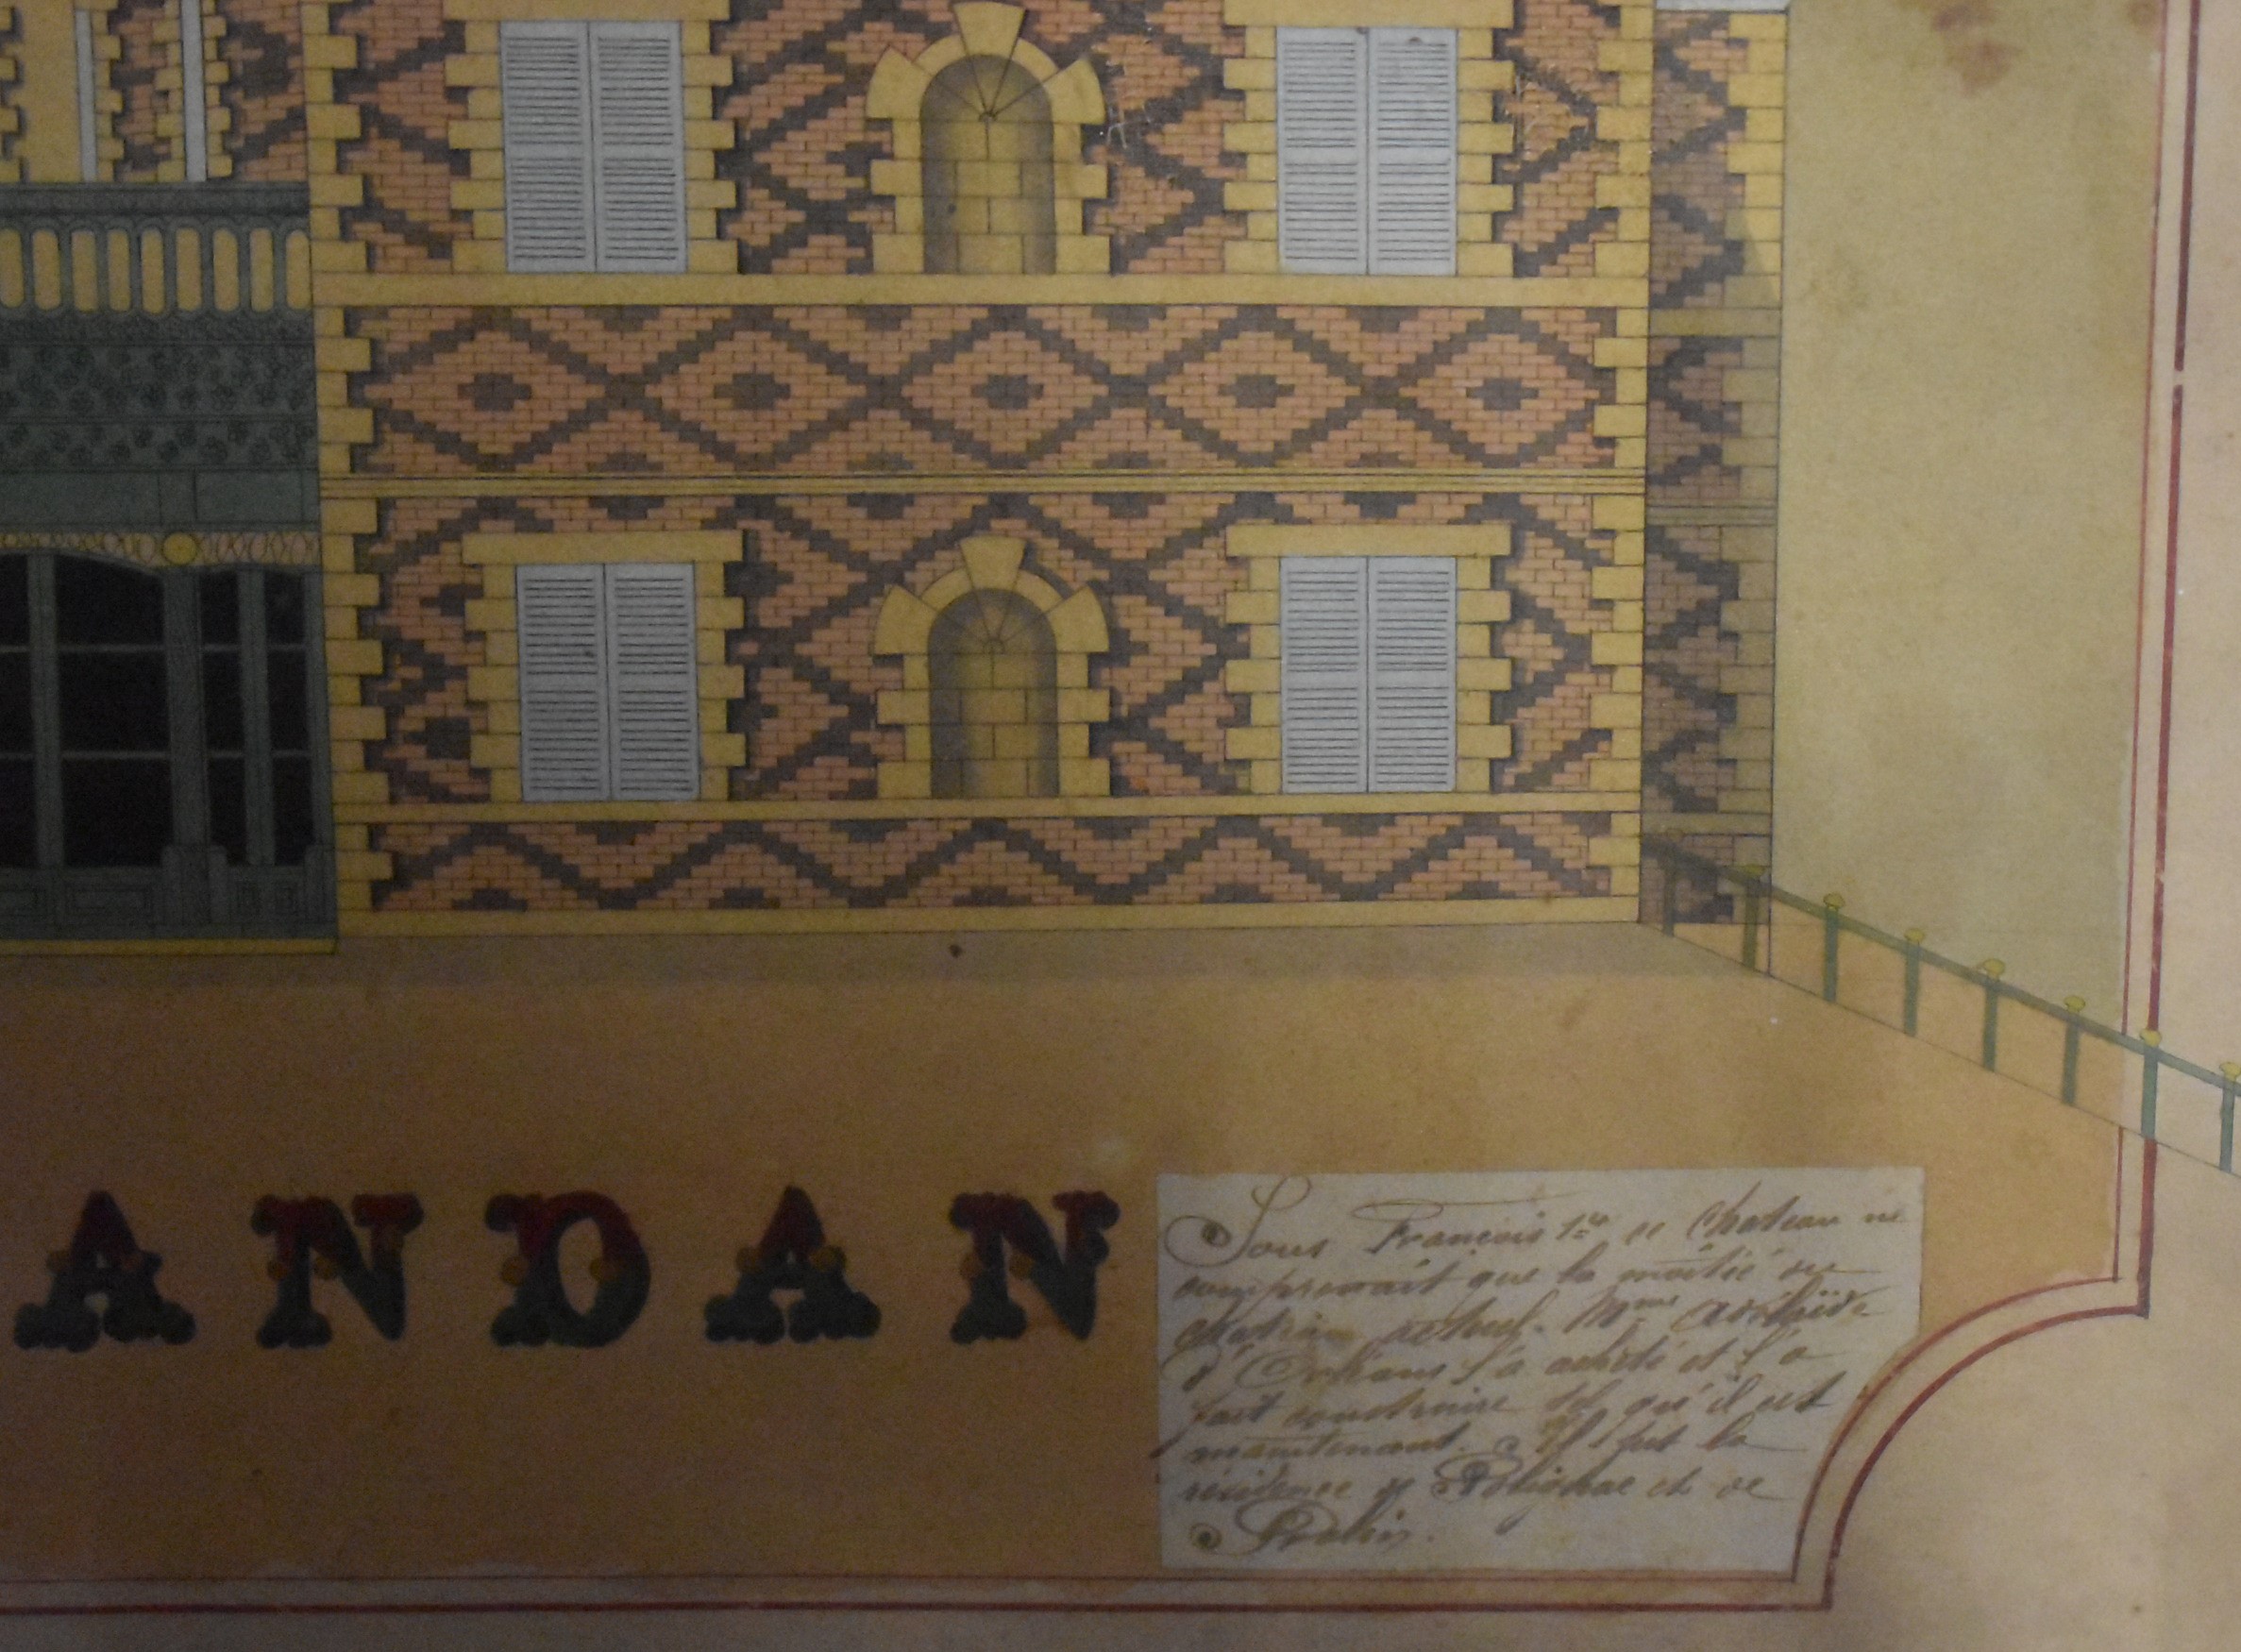 ANDAN
Sous François 1er ce Chateau ne
comprenait que la moitié du
chateau actuel. Mme Adélaïde
d'Orléans l'a acheté et l'a
fait construire tel qu'il est
maintenant. Il fut la
résidence de Polignac et de
Praslin.